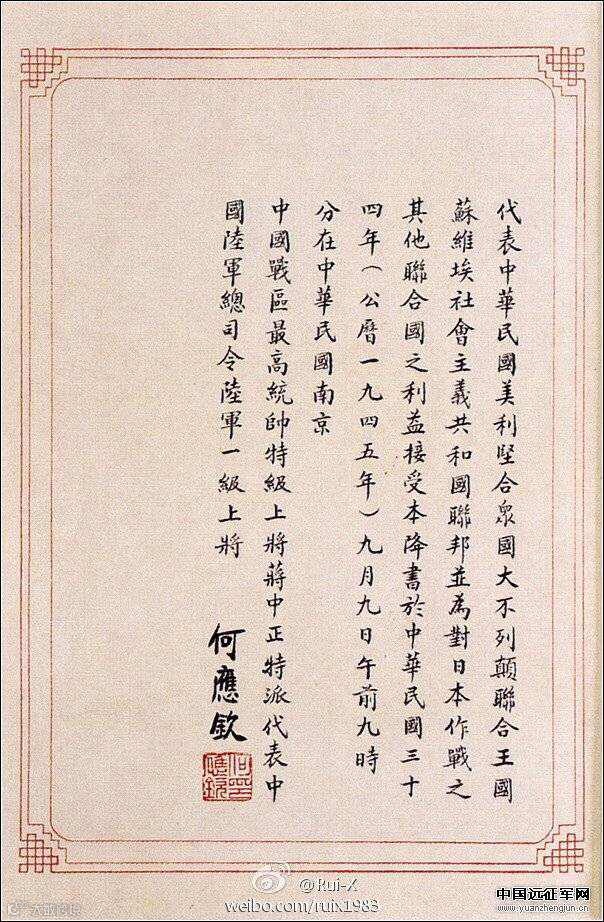 代表中華民國美利堅合眾國大不列顛聯合王國
蘇維埃社會主義共和國聯邦並為對日本作戰之
其他聯合國之利益接受本降書於中華民國三十
四年(公曆一九四五年)九月九日午前九時
分在中華民國南京
中國戰區最高統帥特級上將蔣中正特派代表中
國陸軍總司令陸軍一級上將 何應欽
@Rui-X
weibo.com/ruix1983
中国远征军网
www.yuanzhenjun.cn